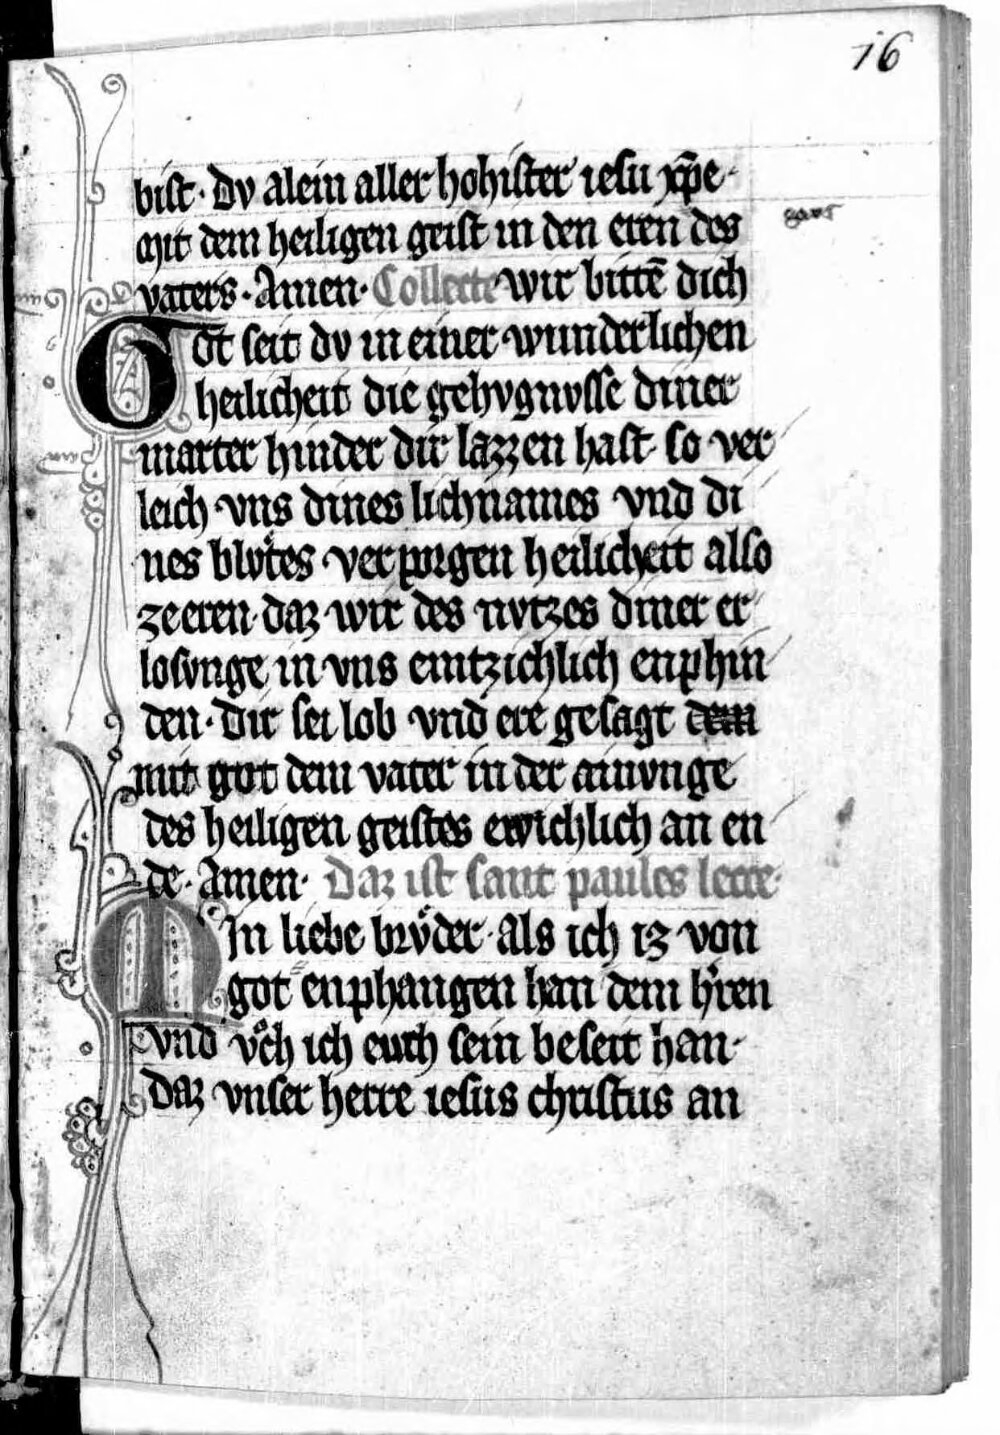 16
bist · Dv alein aller hohister iesu xp̄e ·
mit dem heiligen geist in den eren des
vaters · Amen · Collecte wir bittē dich
Got seit dv in einer wunderlichen
heilicheit die gehvgnvsse diner
marter hinder dir lazzen hast · so ver
leich vns dines lichnames vnd di
nes blvͦtes verporgen heilicheit also
ze eren · daz wir des nvtzes diner er
losvnge in vns eintzichlich enphin
den · Dir sei lob vnd ere gesagt
mit got dem vater in der ainvnge
des heiligen geistes ewichlich an en
de · Amen · Daz ist sant paules lecce ·
Min liebe brvͦder · als ich iz von
got enphangen han dem h̓ren
vnd vͦch ich euch sein beseit han ·
Daz vnser herre iesus christus an